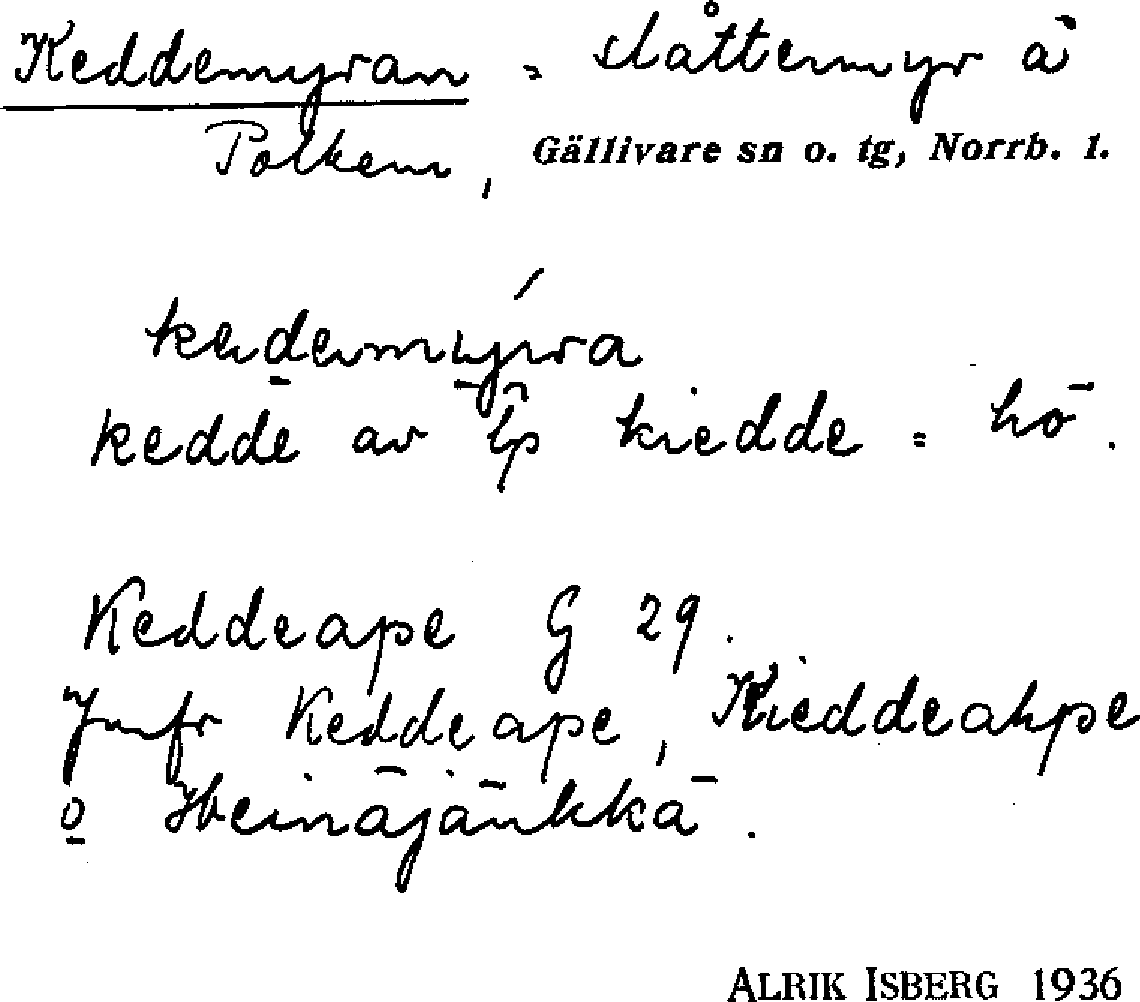 Keddemyran = slåttermyr å
Polkem, Gällivare sn o. tg, Norrb. l.
kedde av lp kiedde = hö.
Keddeape G 29.
Jmfr Keddeape, Kieddeahpe
o Heinäjänkkä.
ALRIK ISBERG 1936